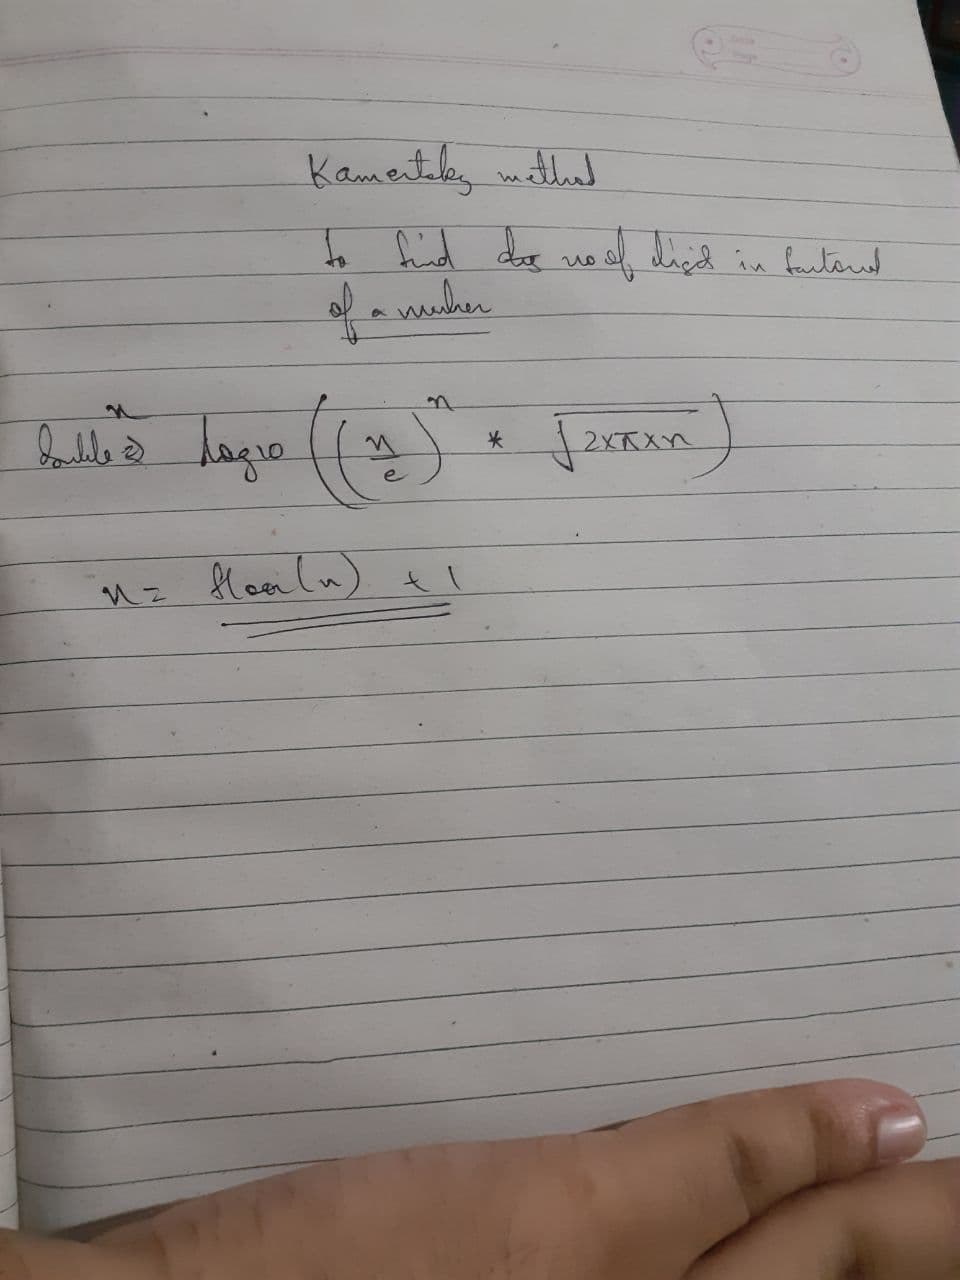 Kamentsky method
to find no of digit in factorial
of a number
double n = log10 ( (n/e)^n * √2×π×n )
n = floor(n) + 1